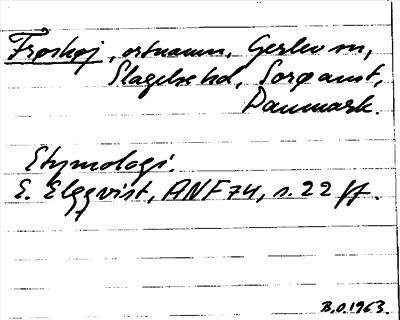 Frøshøj, ortnamn, Gerlev sn,
Slagelse hd, Sorø amt,
Danmark.
Etymologi.
E. Elgqvist, ANF 74, s. 22 ff.
B.O. 1963.